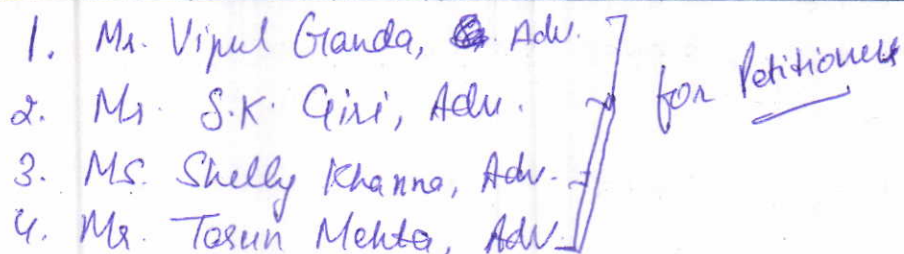 1. Mr. Vipul Ganda, Adv.
2. Mr. S.K. Giri, Adv.
3. MS. Shelly Khanna, Adv.
4. Mr. Tarun Mehta, Adv.
for Petitioners